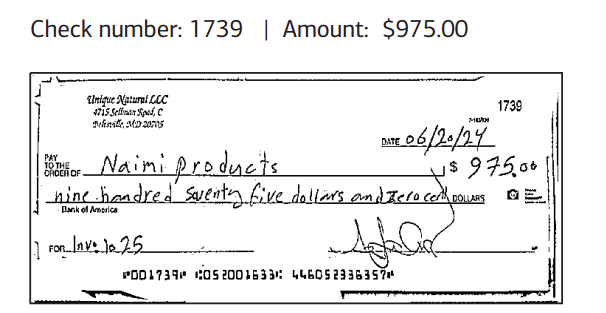 Check number: 1739 | Amount: $975.00
Unique Natural LLC
4715 Sellman Road, C
Beltsville, MD 20705
1739
DATE 06/20/24
PAY TO THE ORDER OF Naimi products $ 975.00
nine handred seventy five dollars and Zero cent DOLLARS
Bank of America
FOR Inv. 1025
⑈001739⑈ ⑆052001633⑆ 446052336357⑈